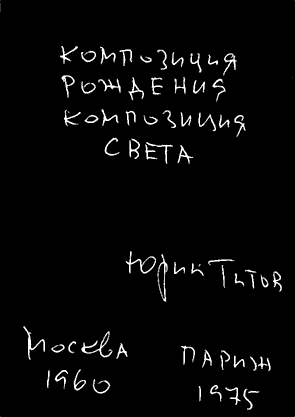 КОМПОЗИЦИЯ
РОЖДЕНИЯ
КОМПОЗИЦИЯ
СВЕТА
Юрик Титов
Москва
1960
ПАРИЖ
1975